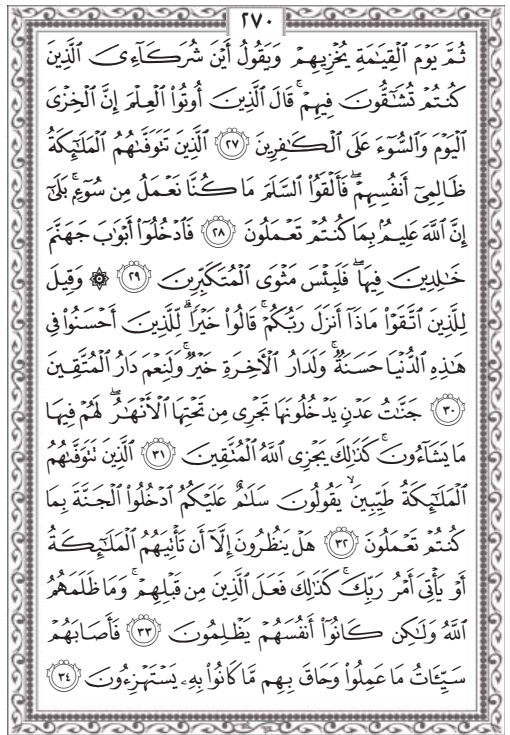 ٢٧٠
ثُمَّ يَوْمَ ٱلْقِيَٰمَةِ يُخْزِيهِمْ وَيَقُولُ أَيْنَ شُرَكَآءِىَ ٱلَّذِينَ
كُنتُمْ تُشَٰٓقُّونَ فِيهِمْ ۚ قَالَ ٱلَّذِينَ أُوتُوا۟ ٱلْعِلْمَ إِنَّ ٱلْخِزْىَ
ٱلْيَوْمَ وَٱلسُّوٓءَ عَلَى ٱلْكَٰفِرِينَ ٢٧ ٱلَّذِينَ تَتَوَفَّىٰهُمُ ٱلْمَلَٰٓئِكَةُ
ظَالِمِىٓ أَنفُسِهِمْ ۖ فَأَلْقَوُا۟ ٱلسَّلَمَ مَا كُنَّا نَعْمَلُ مِن سُوٓءٍۭ ۚ بَلَىٰٓ
إِنَّ ٱللَّهَ عَلِيمٌۢ بِمَا كُنتُمْ تَعْمَلُونَ ٢٨ فَٱدْخُلُوٓا۟ أَبْوَٰبَ جَهَنَّمَ
خَٰلِدِينَ فِيهَا ۖ فَلَبِئْسَ مَثْوَى ٱلْمُتَكَبِّرِينَ ٢٩ ۞ وَقِيلَ
لِلَّذِينَ ٱتَّقَوْا۟ مَاذَآ أَنزَلَ رَبُّكُمْ ۚ قَالُوا۟ خَيْرًا ۗ لِّلَّذِينَ أَحْسَنُوا۟ فِى
هَٰذِهِ ٱلدُّنْيَا حَسَنَةٌ ۚ وَلَدَارُ ٱلْءَاخِرَةِ خَيْرٌ ۚ وَلَنِعْمَ دَارُ ٱلْمُتَّقِينَ
٣٠ جَنَّٰتُ عَدْنٍ يَدْخُلُونَهَا تَجْرِى مِن تَحْتِهَا ٱلْأَنْهَٰرُ ۖ لَهُمْ فِيهَا
مَا يَشَآءُونَ ۚ كَذَٰلِكَ يَجْزِى ٱللَّهُ ٱلْمُتَّقِينَ ٣١ ٱلَّذِينَ تَتَوَفَّىٰهُمُ
ٱلْمَلَٰٓئِكَةُ طَيِّبِينَ ۙ يَقُولُونَ سَلَٰمٌ عَلَيْكُمُ ٱدْخُلُوا۟ ٱلْجَنَّةَ بِمَا
كُنتُمْ تَعْمَلُونَ ٣٢ هَلْ يَنظُرُونَ إِلَّآ أَن تَأْتِيَهُمُ ٱلْمَلَٰٓئِكَةُ
أَوْ يَأْتِىَ أَمْرُ رَبِّكَ ۚ كَذَٰلِكَ فَعَلَ ٱلَّذِينَ مِن قَبْلِهِمْ ۚ وَمَا ظَلَمَهُمُ
ٱللَّهُ وَلَٰكِن كَانُوٓا۟ أَنفُسَهُمْ يَظْلِمُونَ ٣٣ فَأَصَابَهُمْ
سَيِّـَٔاتُ مَا عَمِلُوا۟ وَحَاقَ بِهِم مَّا كَانُوا۟ بِهِۦ يَسْتَهْزِءُونَ ٣٤